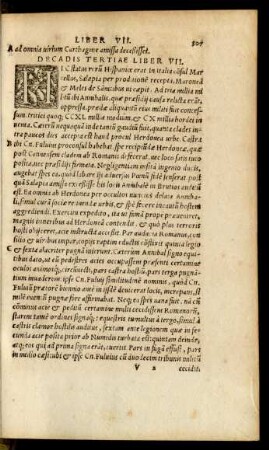 LIBER VII. 504
A ad omnia uirium Carthagine amissa decessisset.
DECADIS TERTIAE LIBER VII.
HIC status rerū in Hispania erat. in italia cōsul Mar
cellus, Salapia per proditionē recepta, Maroneā
& Meles de Samnitibus ui cœpit. Ad tria millia mi
litū ibi Annibalis, quæ præsidij causa relicta erāt,
oppressa, præda aliquantū eius militi concessa
sum. tritici quoq; CCXL millia modiūm, & CX millia hordei in
uenta. Cæterū nequaquā inde tantū gaudiū fuit, quanta clades in
tra paucos dies accepta est haud procul Herdonea urbe. Castra
B ibi Cn. Fuluius proconsul habebat spe recipiēdæ Herdoneæ, quæ
post Cannensem cladem ab Romanis defecerat, nec loco satis tuto
posita, nec præsidijs firmata. Negligentiam insitā ingenio ducis
augebat spes ea, quòd labare ijs aduersus Pœnū fidē senserat, post
quā Salapia amissa excessisse ijs locis Annibalē in Brutios auditū
est. Ea omnia ab Herdonea per occultos nuncios delata Annibali,
simul curā sociæ retinendæ urbis, & spē fecere incautū hostem
aggrediendi. Exercitu expedito, ita ut famā propè præueniret,
magnis itineribus ad Herdoneā contendit: & quo plus terroris
hosti obijceret, acie instructa accessit. Par audacia Romanus, con
silio & uiribus impar, copijs raptim eductis cōflixit. quinta legio
C & sexta alacriter pugnam inierunt. Cæterum Annibal signo equi
tibus dato, ut cū pedestres acies occupassent præsenti certamine
oculos animosq;, circūuecti, pars castra hostium, pars terga pugnā
tium inuaderent. ipse Cn. Fuluij similitudinē nominis, quòd Cn.
Fuluiū prætorē biennio antè in ijsdē deuicerat locis, increpans, si
milem euentū pugnæ fore affirmabat. Neq; ea spes uana fuit. nā cū
cōminus acie & peditum certamine multi cecidissent Romanorū,
starent tamē ordines signaq;: equestris tumultus à tergo, simul à
castris clamor hostilis auditus, sextam ante legionem quæ in
secunda acie posita prior ab Numidis turbata est, quintam deinde,
atq; eos qui ad prima signa erāt, auertit. Pars in fugā effusi, pars in
medio cæsi. ubi & ipse Cn. Fuluius cū duodecim tribunis militū
V 2 cecidit.